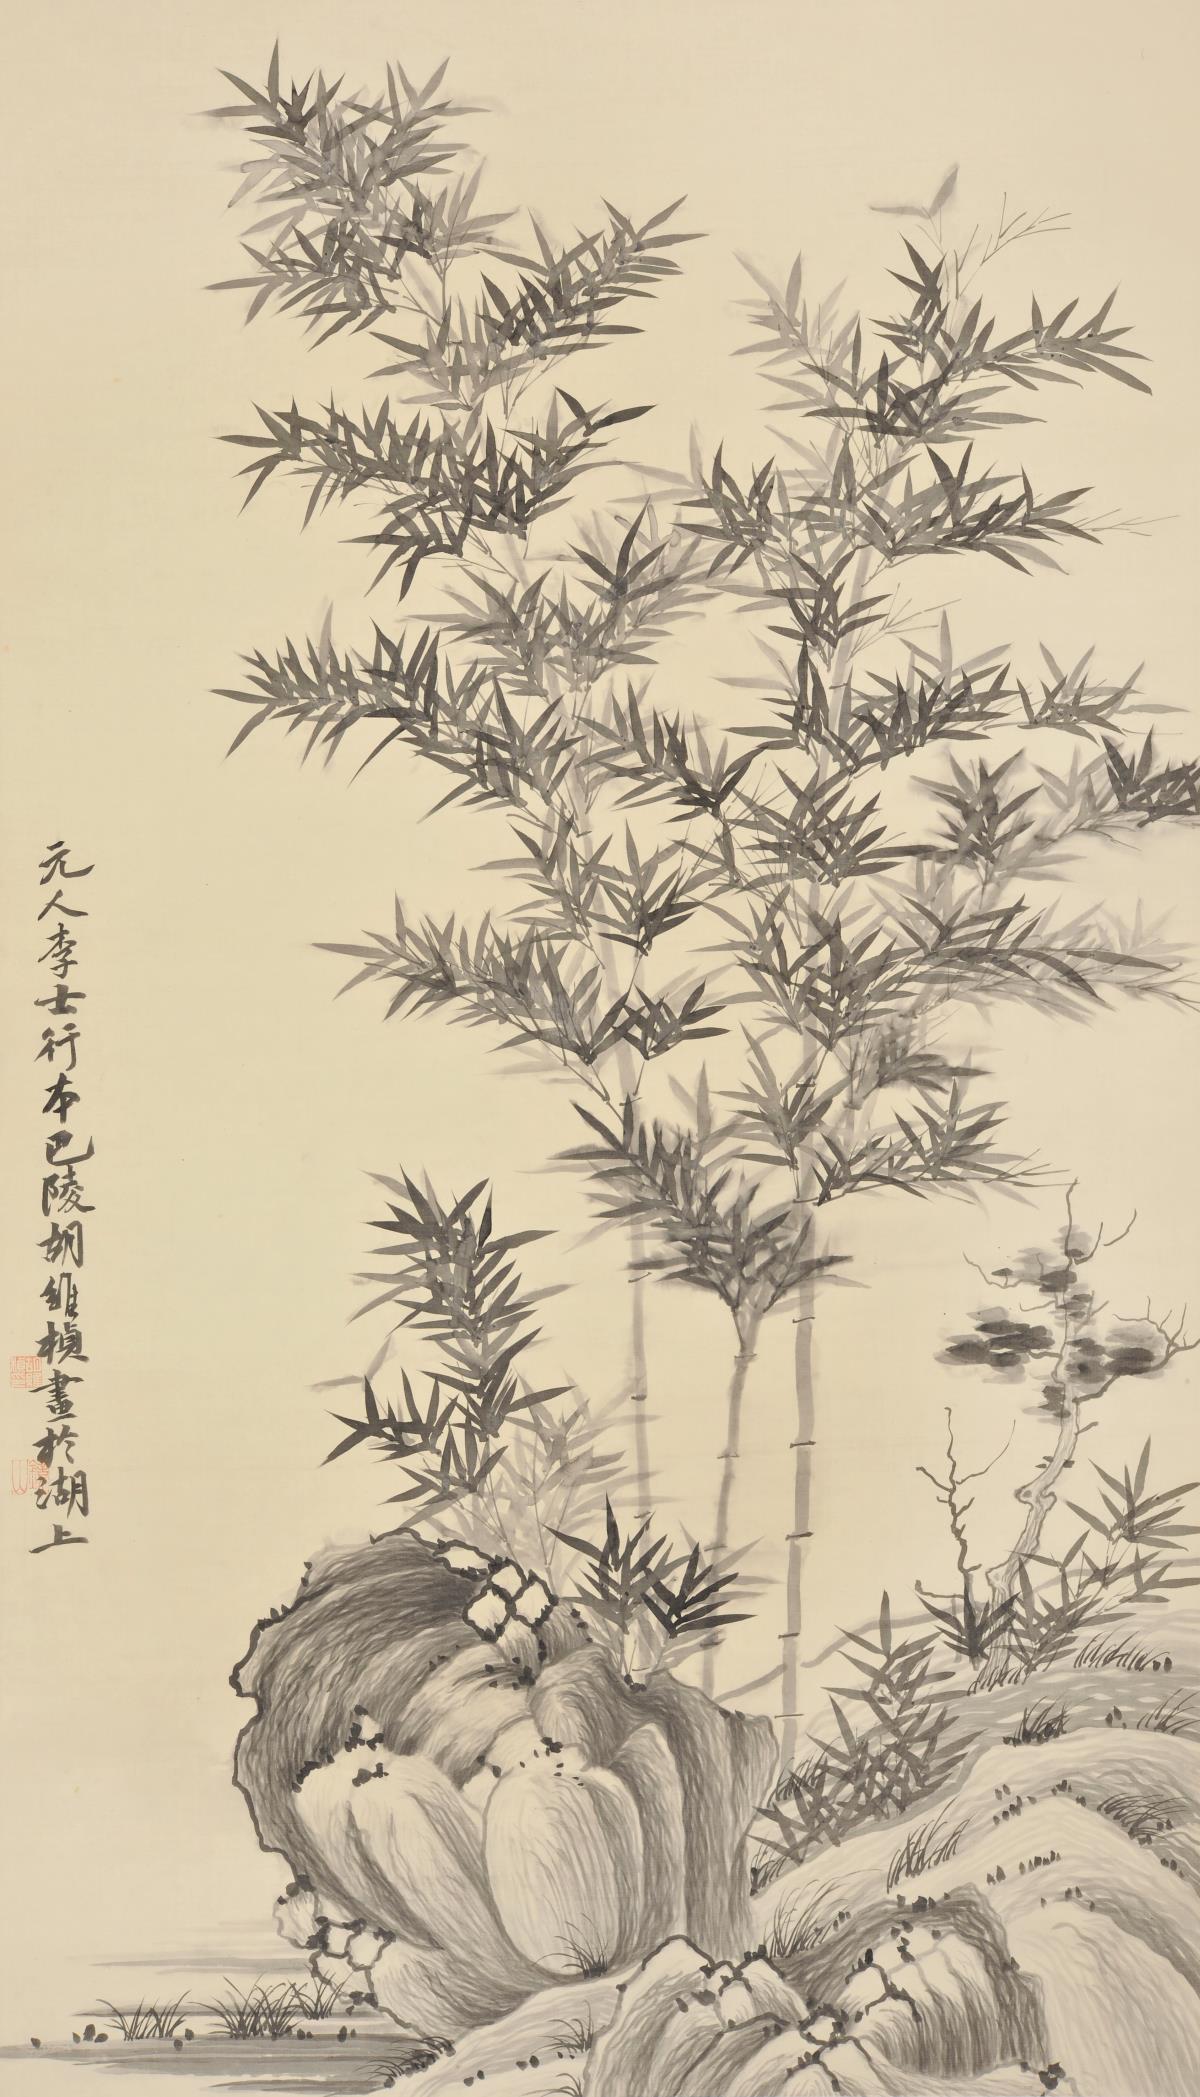 元人李士行本巴陵胡維楨畫於湖上